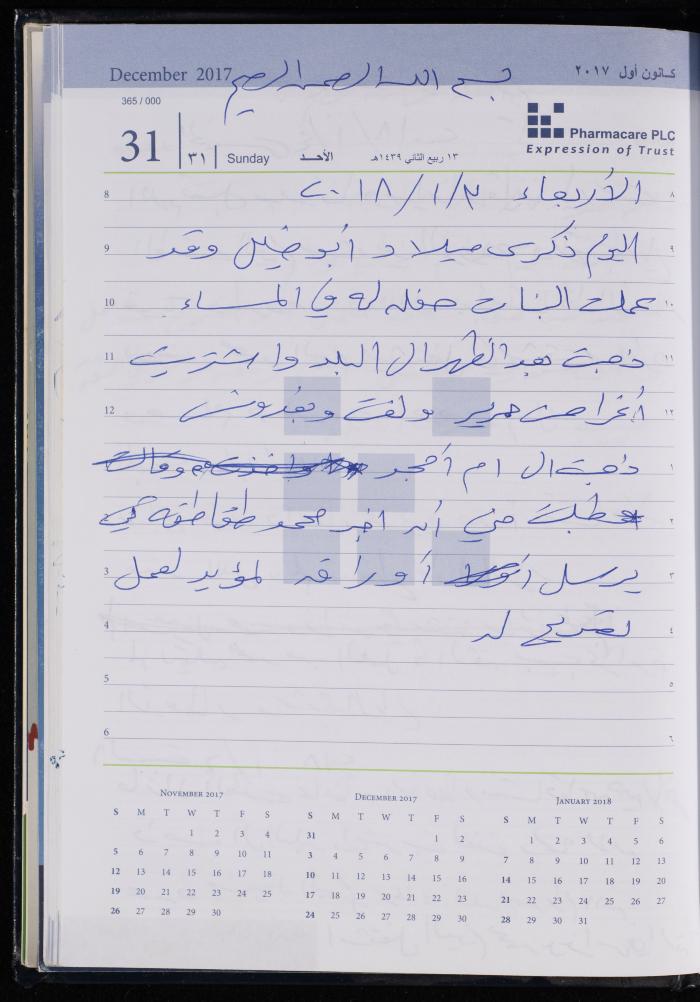 December 2017
بسم الله الرحمن الرحيم
كانون أول ٢٠١٧
365 / 000
31
٣١
Sunday
الأحد
١٣ ربيع الثاني ١٤٣٩هـ
Pharmacare PLC
Expression of Trust
8 الأربعاء ٢٠١٨/١/٣ ٨
9 اليوم ذكرى ميلاد أبو خليل وقد ٩
10 عملت البنات حفله له في المساء ١٠
11 ذهبت بعد الظهر ال البلد واشتريت ١١
12 أغراض حمرير ولفت وبقدونس ١٢
1 ذهبت ال ام أمجد وقالت ١
2 طلبت مني أن اخبر محمد طقاطقه كي ٢
3 يرسل أوراقه لمؤيد لعمل ٣
4 تصريح له ٤
5 ٥
6 ٦
November 2017
S M T W T F S
1 2 3 4
5 6 7 8 9 10 11
12 13 14 15 16 17 18
19 20 21 22 23 24 25
26 27 28 29 30
December 2017
S M T W T F S
31 1 2
3 4 5 6 7 8 9
10 11 12 13 14 15 16
17 18 19 20 21 22 23
24 25 26 27 28 29 30
January 2018
S M T W T F S
1 2 3 4 5 6
7 8 9 10 11 12 13
14 15 16 17 18 19 20
21 22 23 24 25 26 27
28 29 30 31